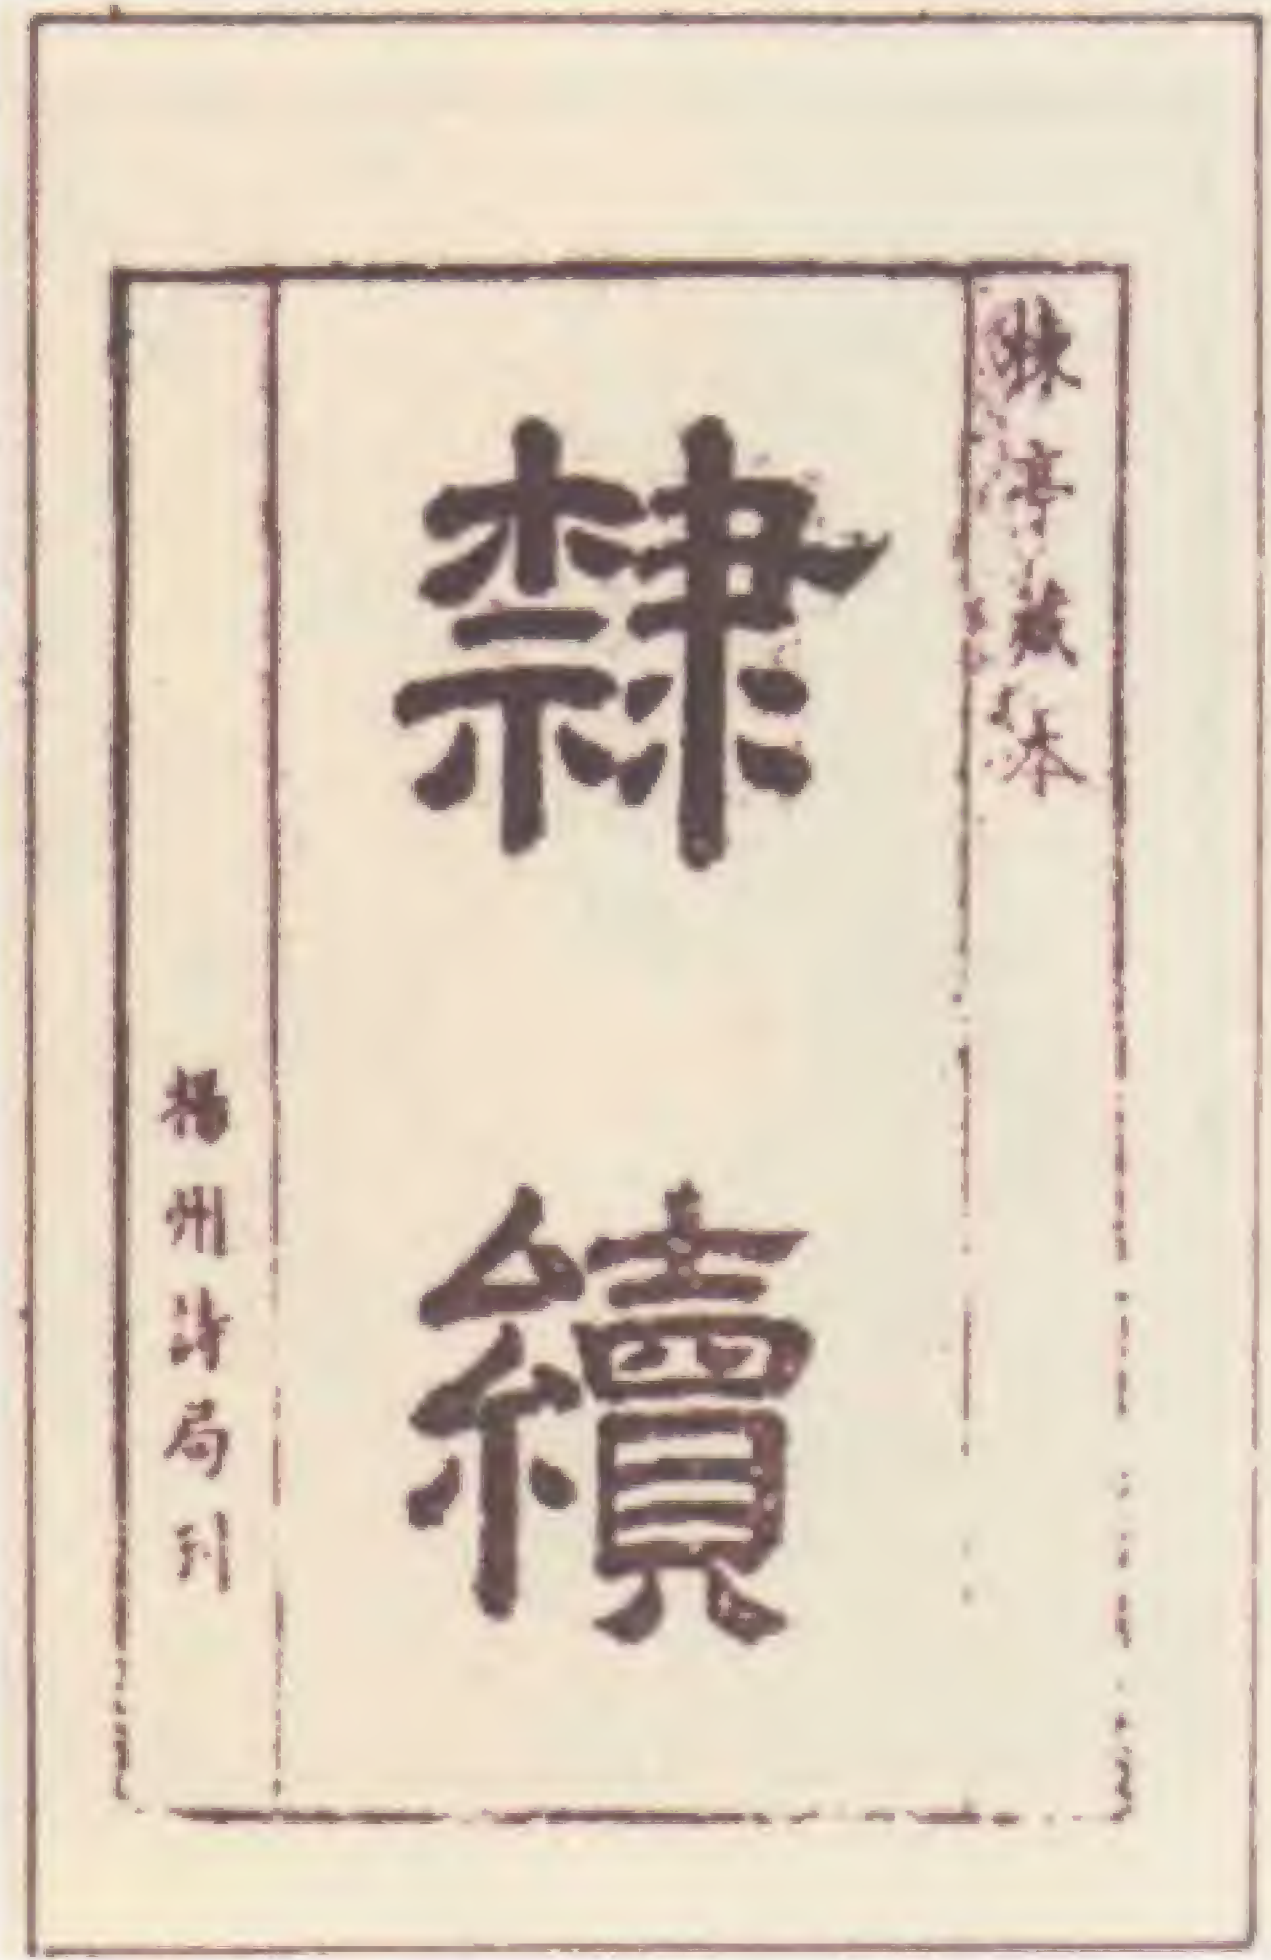 楝亭藏本
隸續
揚州詩局刊